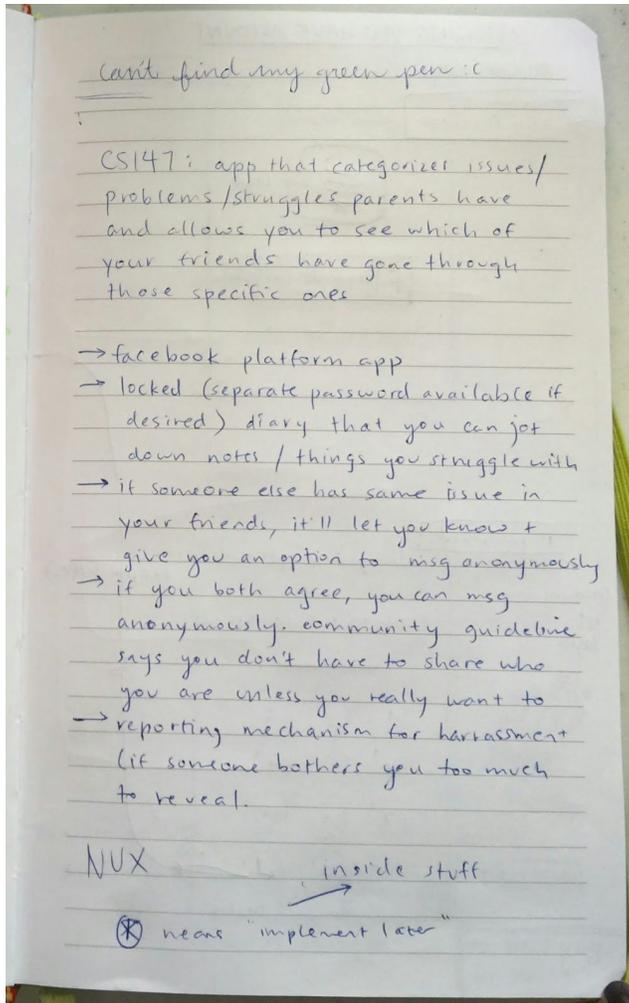 can't find my green pen :c
CS147: app that categorizes issues/
problems/struggles parents have
and allows you to see which of
your friends have gone through
those specific ones
→ facebook platform app
→ locked (separate password available if
desired) diary that you can jot
down notes / things you struggle with
→ if someone else has same issue in
your friends, it'll let you know +
give you an option to msg anonymously
→ if you both agree, you can msg
anonymously. community guideline
says you don't have to share who
you are unless you really want to
→ reporting mechanism for harrassment
(if someone bothers you too much
to reveal.
NUX
inside stuff
* means "implement later"